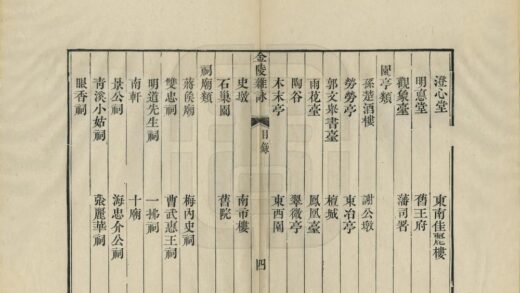 澄心堂 東南佳麗樓
明志堂 舊王府
觀象臺 藩司署
園亭類
孫楚酒樓 謝公墩
勞勞亭 東冶亭
郭文舉書臺 檀城
雨花臺 鳳凰臺
陶谷 翠微亭
木末亭 東西園
金陵雜詠 目錄 四
史墩 南市樓
石巢園 舊院
祠廟類
蔣侯廟 梅內史祠
雙忠祠 曹武惠王祠
明道先生祠 一拂祠
南軒 十廟
景公祠 海忠介公祠
青溪小姑祠 張麗華祠
眼香祠